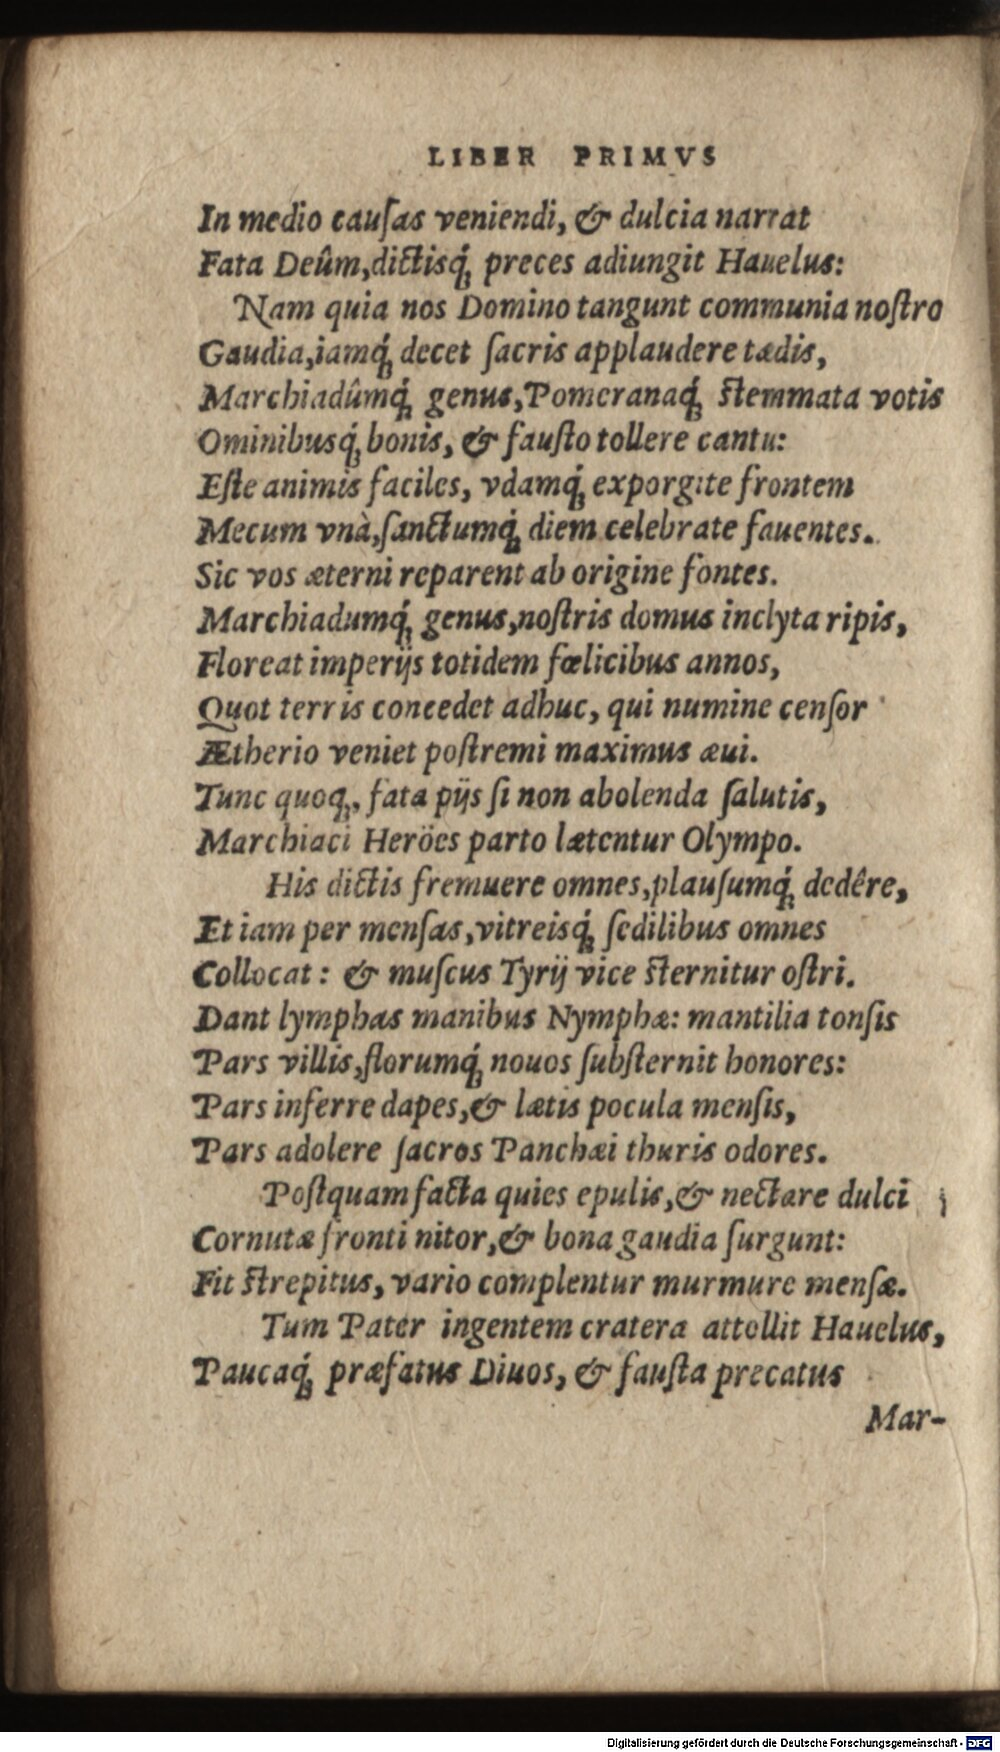 LIBER PRIMVS
In medio cauſas veniendi, & dulcia narrat
Fata Deûm, dictisq́; preces adiungit Hauelus:
Nam quia nos Domino tangunt communia noſtro
Gaudia, iamq́; decet ſacris applaudere tædis,
Marchiadûmq́; genus, Pomeranaq́; ſtemmata votis
Ominibusq́; bonis, & fauſto tollere cantu:
Eſte animis faciles, vdamq́; exporgite frontem
Mecum vnà, ſanctumq́; diem celebrate fauentes.
Sic vos æterni reparent ab origine fontes.
Marchiadumq́; genus, noſtris domus inclyta ripis,
Floreat imperijs totidem fœlicibus annos,
Quot terris concedet adhuc, qui numine cenſor
Ætherio veniet poſtremi maximus æui.
Tunc quoq;, fata pijs ſi non abolenda ſalutis,
Marchiaci Heröes parto lætentur Olympo.
His dictis fremuere omnes, plauſumq́; dedêre,
Et iam per menſas, vitreisq́; ſedilibus omnes
Collocat: & muſcus Tyrij vice ſternitur oſtri.
Dant lymphas manibus Nymphæ: mantilia tonſis
Pars villis, florumq́; nouos ſubſternit honores:
Pars inferre dapes, & lætis pocula menſis,
Pars adolere ſacros Panchæi thuris odores.
Poſtquam facta quies epulis, & nectare dulci
Cornutæ fronti nitor, & bona gaudia ſurgunt:
Fit ſtrepitus, vario complentur murmure menſæ.
Tum Pater ingentem cratera attollit Hauelus,
Paucaq́; præfatus Diuos, & fauſta precatus
Mar-
Digitalisierung gefördert durch die Deutsche Forschungsgemeinschaft - DFG